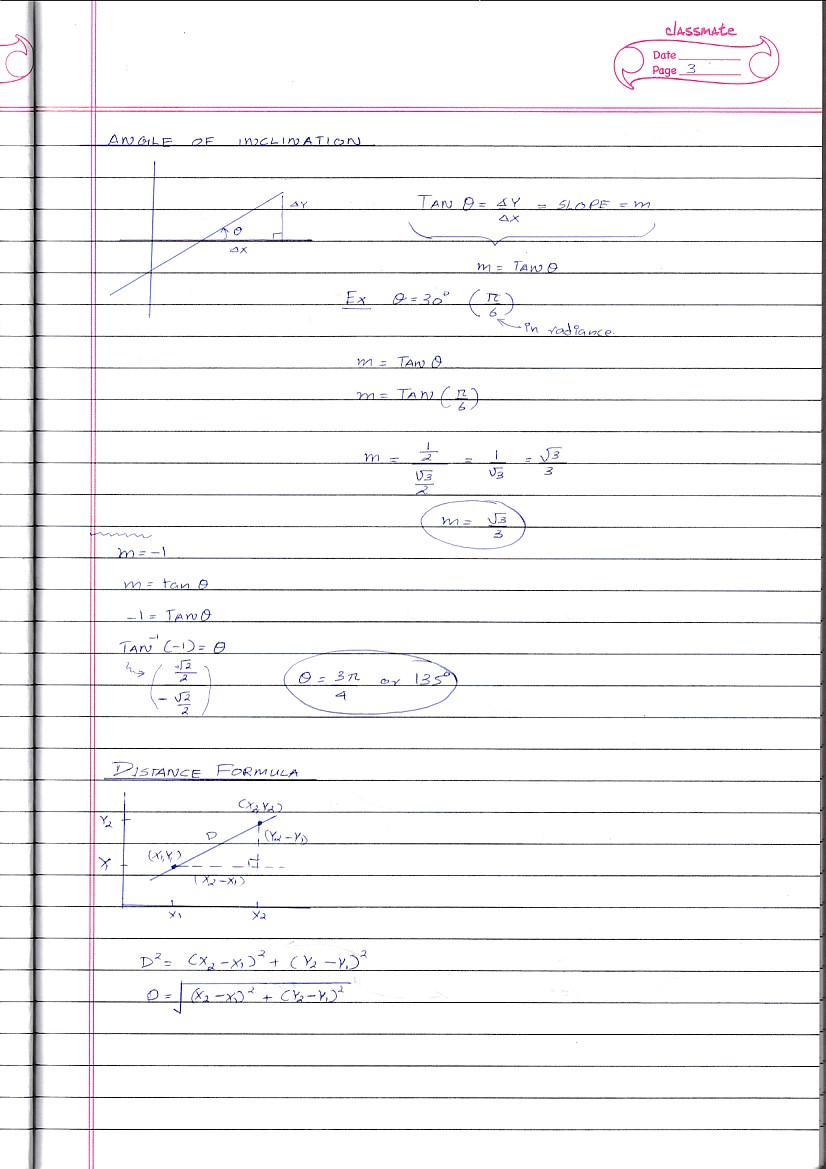 classmate
Date
Page 3
ANGLE OF INCLINATION
ΔY
θ
ΔX
TAN θ = ΔY/ΔX = SLOPE = m
m = TAN θ
Ex θ = 30° (π/6)
in radiance.
m = TAN θ
m = TAN (π/6)
m = (1/2)/(√3/2) = 1/√3 = √3/3
m = √3/3
m = -1
m = tan θ
-1 = TAN θ
TAN⁻¹ (-1) = θ
(√2/2 / -√2/2)
θ = 3π/4 or 135°
DISTANCE FORMULA
(X₂Y₂)
Y₂
D
(Y₂-Y₁)
(X₁Y₁)
Y₁
(X₂-X₁)
X₁ X₂
D² = (X₂-X₁)² + (Y₂-Y₁)²
D = √((X₂-X₁)² + (Y₂-Y₁)²)